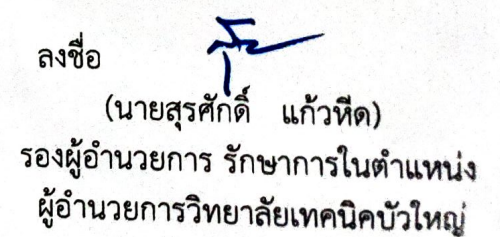 ลงชื่อ
(นายสุรศักดิ์ แก้วหีด)
รองผู้อำนวยการ รักษาการในตำแหน่ง
ผู้อำนวยการวิทยาลัยเทคนิคบัวใหญ่